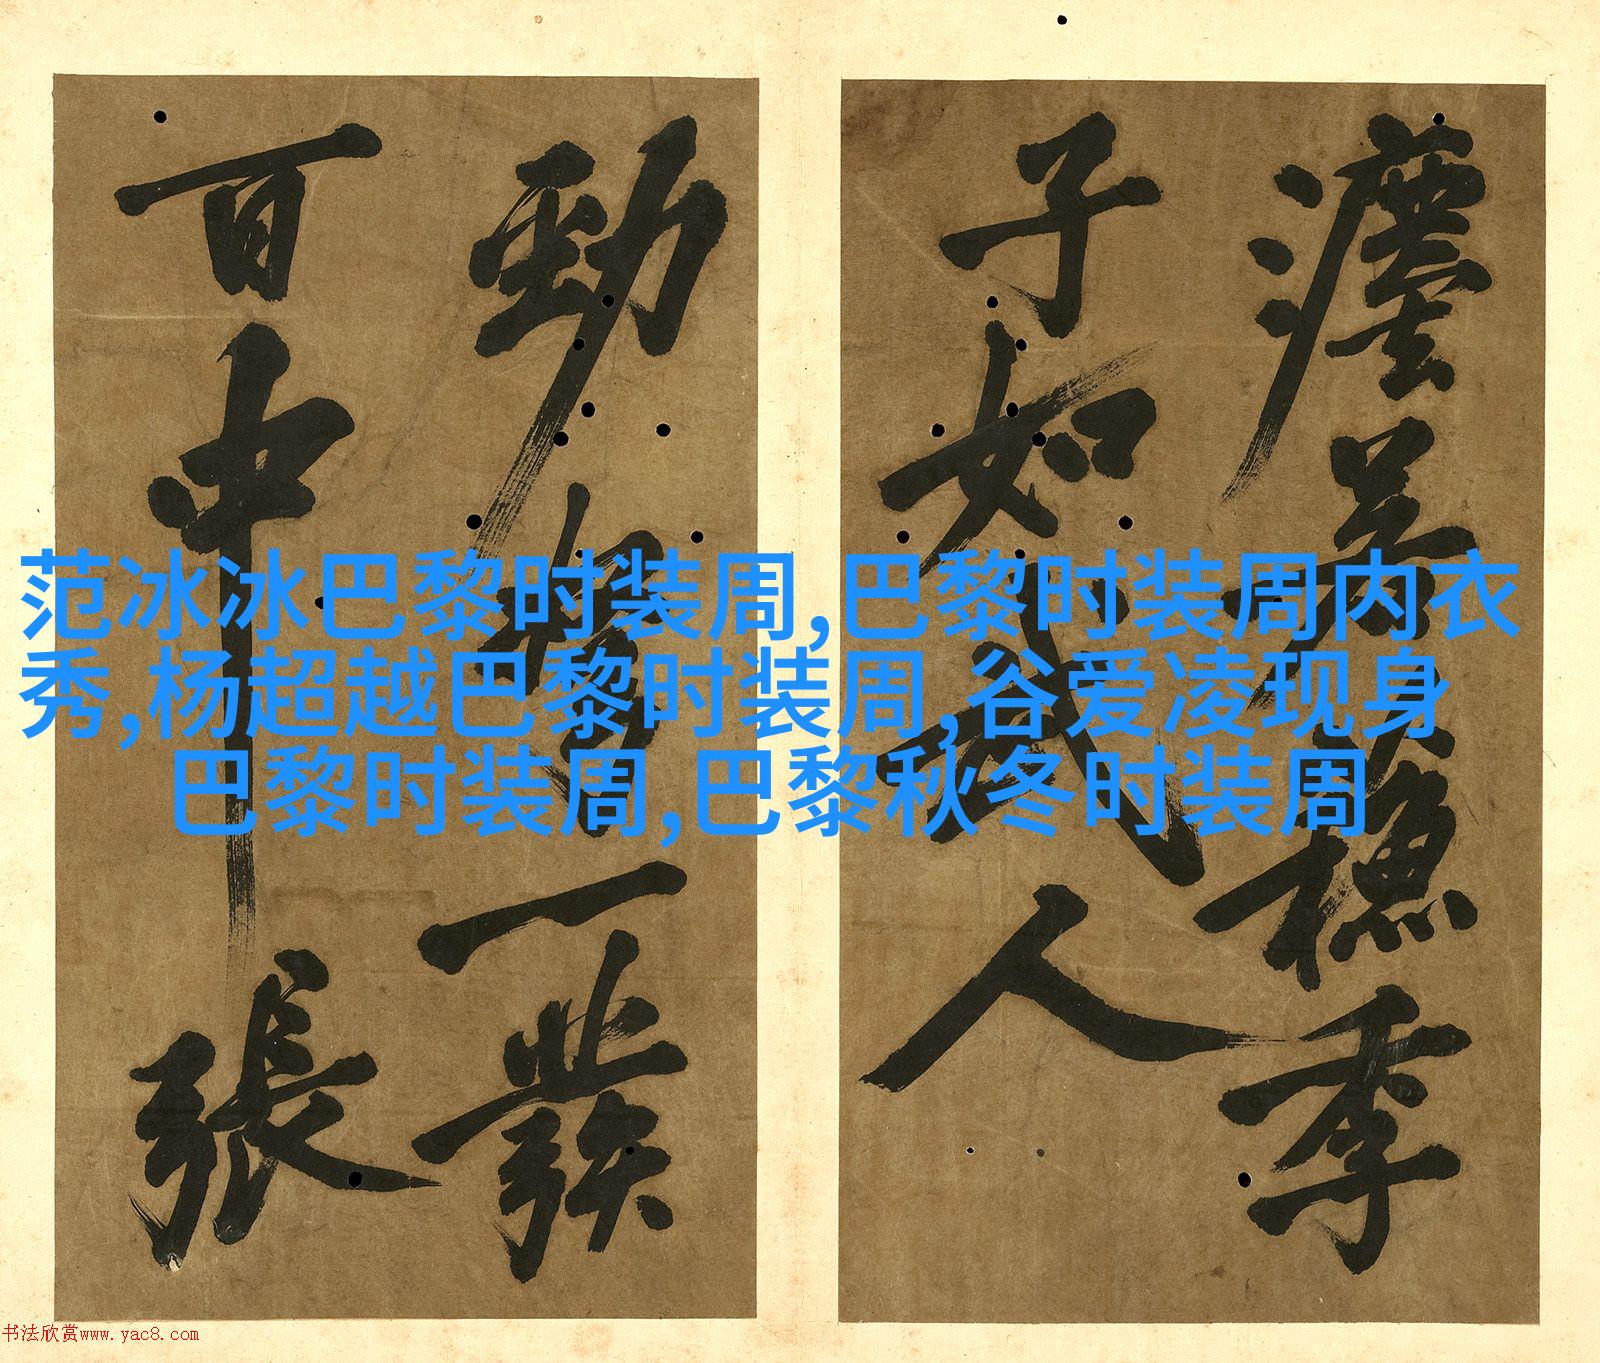 范冰冰巴黎时装周,巴黎时装周内衣
秀,杨超越巴黎时装周,谷爱凌现身
巴黎时装周,巴黎秋冬时装周
季
子如武人
勁一發
百中張
书法欣赏www.yac8.com